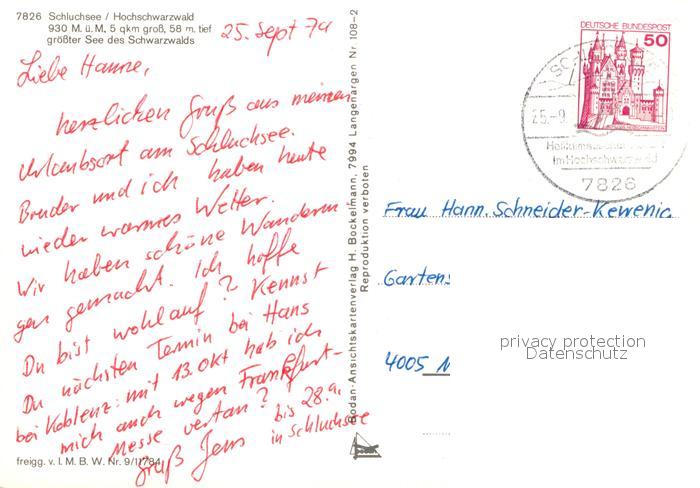 7826 Schluchsee / Hochschwarzwald
930 M. ü. M, 5 qkm groß, 58 m. tief
größter See des Schwarzwalds
25. Sept 79
Liebe Hanne,
herzlichen Gruß aus meinem
Urlaubsort am Schluchsee.
Bruder und ich haben heute
wieder warmes Wetter.
Wir haben schöne Wanderun-
gen gemacht. Ich hoffe
Du bist wohlauf? Kennst
Du nächsten Termin bei Hans
bei Koblenz: mit 13. Okt hab ich
mich auch wegen Frankfurt-
Messe vertan?
Gruß Jens
bis 28.9.
in Schluchsee
freigg. v. I. M. B. W. Nr. 9/11784
Bodan-Ansichtskartenverlag H. Bockelmann, 7994 Langenargen Nr. 108-2
Reproduktion verboten
DEUTSCHE BUNDESPOST
50
25.-9
im Hochschwarzwald
7826
Frau Hann. Schneider-Kewenig
Gartens
4005 M
privacy protection
Datenschutz